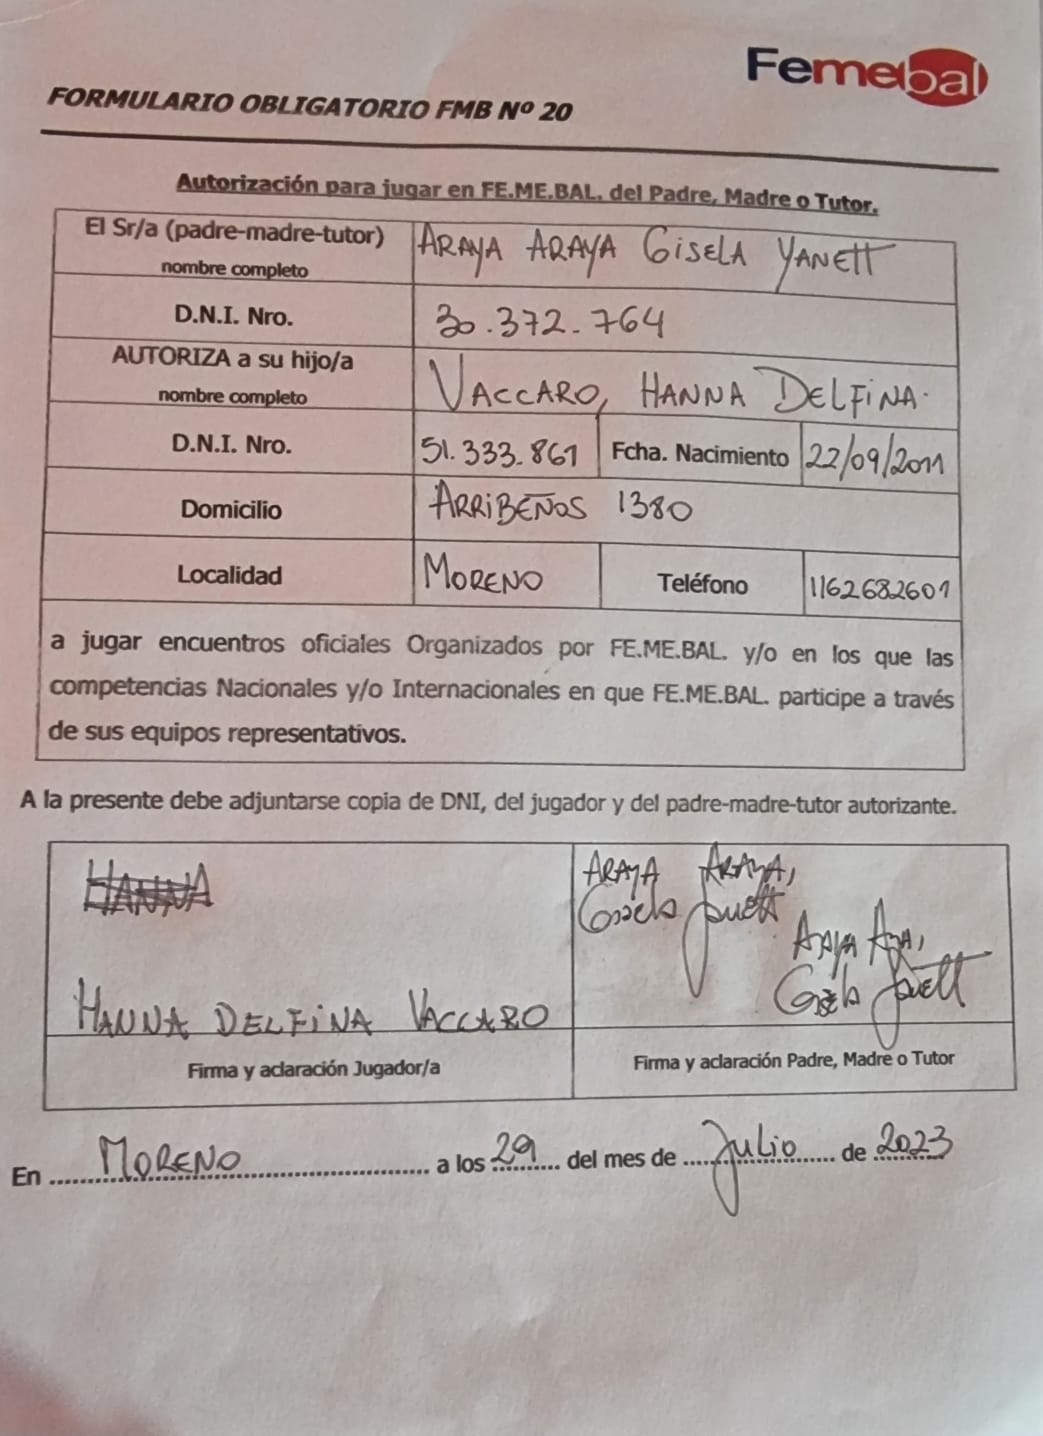 Femebal
FORMULARIO OBLIGATORIO FMB Nº 20
Autorización para jugar en FE.ME.BAL. del Padre, Madre o Tutor.
El Sr/a (padre-madre-tutor) nombre completo ARAYA ARAYA GISELA YANETT
D.N.I. Nro. 30.372.764
AUTORIZA a su hijo/a nombre completo VACCARO, HANNA DELFINA.
D.N.I. Nro. 51.333.861 Fcha. Nacimiento 22/09/2011
Domicilio ARRIBEÑOS 1380
Localidad MORENO Teléfono 1162682601
a jugar encuentros oficiales Organizados por FE.ME.BAL. y/o en los que las
competencias Nacionales y/o Internacionales en que FE.ME.BAL. participe a través
de sus equipos representativos.
A la presente debe adjuntarse copia de DNI, del jugador y del padre-madre-tutor autorizante.
HANNA
HANNA DELFINA VACCARO
Firma y aclaración Jugador/a
ARAYA ARAYA,
Gisela Yanett
Araya Araya,
Gisela Yanett
Firma y aclaración Padre, Madre o Tutor
En MORENO a los 29 del mes de Julio de 2023